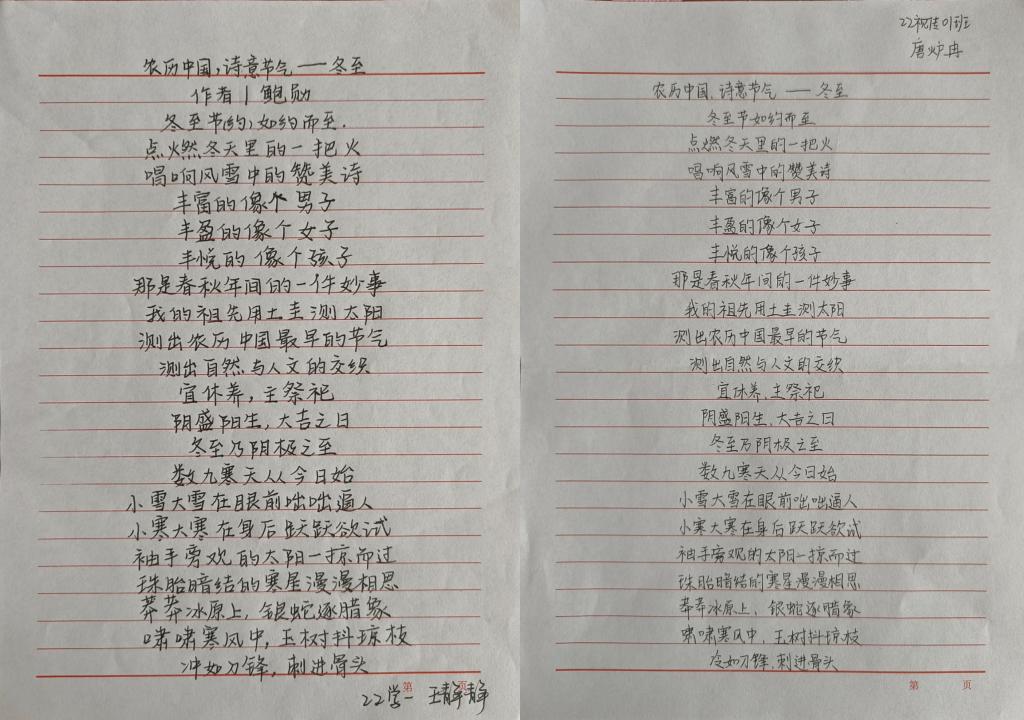 农历中国,诗意节气——冬至
作者|鲍勋
冬至节约,如约而至.
点燃冬天里的一把火
唱响风雪中的赞美诗
丰富的像个男子
丰盈的像个女子
丰悦的像个孩子
那是春秋年间的一件妙事
我的祖先用土圭测太阳
测出农历中国最早的节气
测出自然与人文的交织
宜休养,主祭祀
阴盛阳生,大吉之日
冬至乃阴极之至
数九寒天从今日始
小雪大雪在眼前咄咄逼人
小寒大寒在身后跃跃欲试
袖手旁观的太阳一掠而过
珠胎暗结的寒星漫漫相思
莽莽冰原上,银蛇逐腊象
啸啸寒风中,玉树抖琼枝
冲如刀锋,刺进骨头
第 页
22学一 王静静
22视传01班
唐炉冉
农历中国,诗意节气——冬至
冬至节如约而至
点燃冬天里的一把火
唱响风雪中的赞美诗
丰富的像个男子
丰盈的像个女子
丰悦的像个孩子
那是春秋年间的一件妙事
我的祖先用土圭测太阳
测出农历中国最早的节气
测出自然与人文的交织
宜休养,主祭祀
阴盛阳生,大吉之日
冬至乃阴极之至
数九寒天从今日始
小雪大雪在眼前咄咄逼人
小寒大寒在身后跃跃欲试
袖手旁观的太阳一掠而过
珠胎暗结的寒星漫漫相思
莽莽冰原上,银蛇逐腊象
啸啸寒风中,玉树抖琼枝
冷如刀锋,刺进骨头
第 页